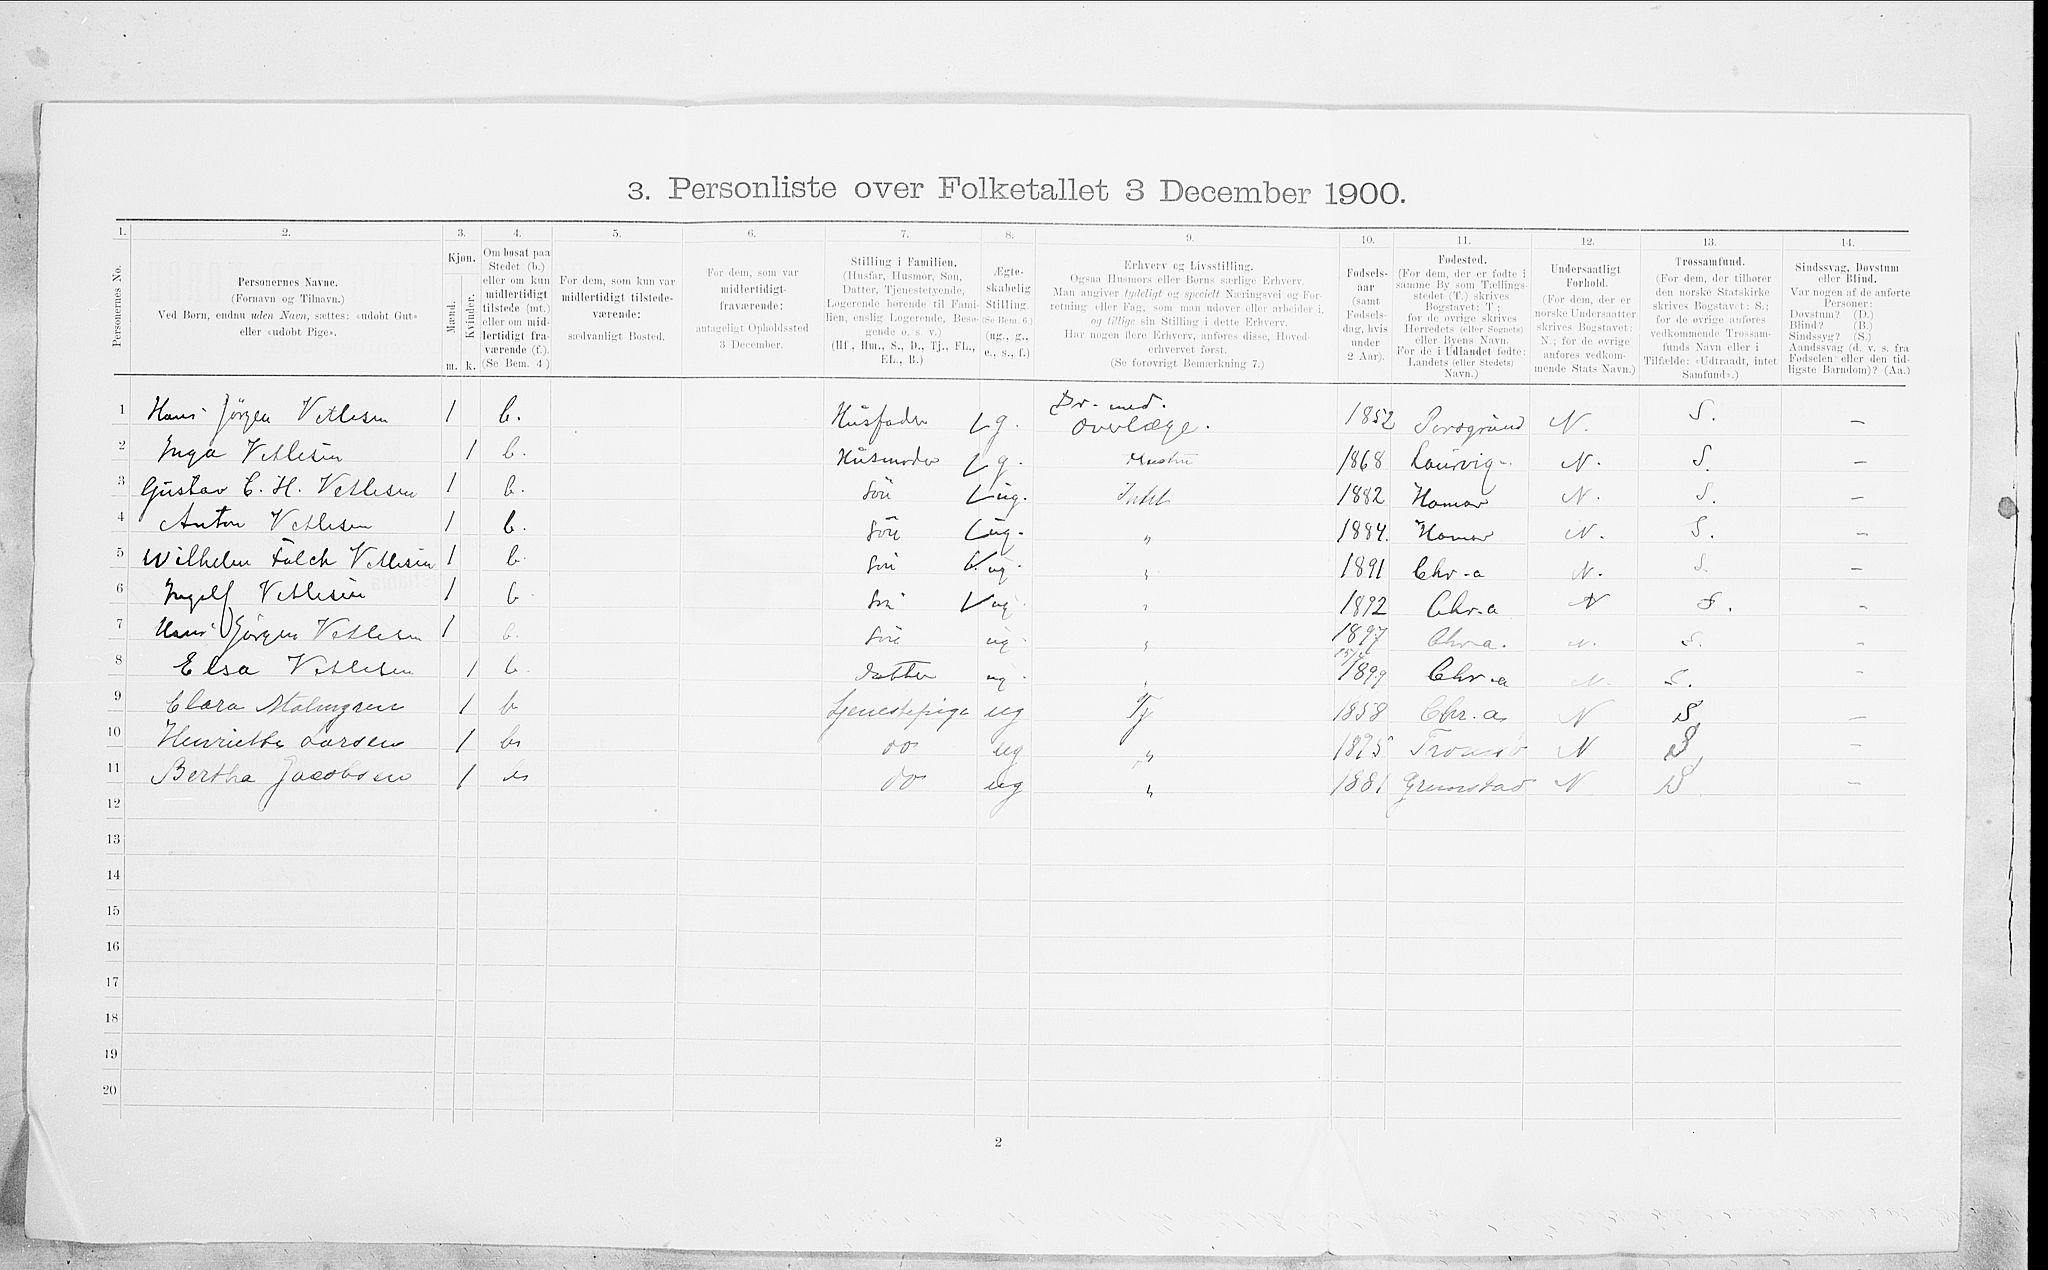 3. Personliste over Folketallet 3 December 1900.
1. 2. 3. 4. 5. 6. 7. 8. 9. 10. 11. 12. 13. 14.
Personernes No.
Personernes Navne.
(Fornavn og Tilnavn.)
Ved Børn, endnu uden Navn, sættes: «udøbt Gut»
eller «udøbt Pige».
Kjøn.
Mænd.
Kvinder.
m. k.
Om bosat paa
Stedet (b.)
eller om kun
midlertidigt
tilstede (mt.)
eller om mid-
lertidigt fra-
værende (f.).
(Se Bem. 4.)
For dem, som kun var
midlertidigt tilstede-
værende:
sædvanligt Bosted.
For dem, som var
midlertidigt-
fraværende:
antageligt Opholdssted
3 December.
Stilling i Familien.
(Husfar, Husmor, Søn,
Datter, Tjenestetyende,
Logerende hørende til Fami-
lien, enslig Logerende, Besø-
gende o. s. v.)
(Hf., Hm., S., D., Tj., FL.,
EL., B.)
Ægte-
skabelig
Stilling.
(Se Bem. 6.)
(ug., g.,
e., s., f.)
Erhverv og Livsstilling.
Ogsaa Husmors eller Børns særlige Erhverv.
Man angiver tydeligt og specielt Næringsvei og For-
retning eller Fag, som man udøver eller arbeider i,
og tillige sin Stilling i dette Erhverv.
Har nogen flere Erhverv, anføres disse, Hoved-
erhvervet først.
(Se forøvrigt Bemærkning 7.)
Fødsels-
aar
(samt
Fødsels-
dag, hvis
under
2 Aar).
Fødested.
(For dem, der er fødte i
samme By som Tællings-
stedet (T.) skrives
Bogstavet: T.;
for de øvrige skrives
Herredets (eller Sognets)
eller Byens Navn.
For de i Udlandet fødte:
Landets (eller Stedets)
Navn.)
Undersaatligt
Forhold.
(For dem, der er
norske Undersaatter
skrives Bogstavet:
N.; for de øvrige
anføres vedkom-
mende Stats Navn.)
Trossamfund.
(For dem, der tilhører
den norske Statskirke
skrives Bogstavet: S.;
for de øvrige anføres
vedkommende Trossam-
funds Navn eller i
Tilfælde: «Udtraadt, intet
Samfund».)
Sindssvag, Døvstum
eller Blind.
Var nogen af de anførte
Personer:
Døvstum? (D.)
Blind? (B.)
Sindssyg? (S.)
Aandssvag (d. v. s. fra
Fødselen eller den tid-
ligste Barndom)? (Aa.)
1 Hans Jörgen Vetlesen 1 b. Husfader g. Dr. med. Overlæge. 1852 Porsgrund N. S. –
2 Inga Vetlesen 1 b. Husmoder g. 1868 Laurvig N. S. –
3 Gustav C. H. Vetlesen 1 b. Sön ug. 1882 Hamar N. S. –
4 Anton Vetlesen 1 b. Sön ug. „ 1884. Hamar N. S. –
5 Wilhelm Falck Vetlesen 1 b. Sön ug. „ 1891 Chr.a N. S. –
6 Ingolf Vetlesen 1 b. Sön ug. „ 1892 Chr.a N S. –
7 Hans Jörgen Vetlesen 1 b. Sön ug. „ 1897 Chr.a. N. S. –
8 Elsa Vetlesen 1 b. Datter ug. „ 1899 Chr.a N. S. –
9 Clara Malmgren 1 b Tjenestepige ug Tj 1858 Chr.a N S. –
10 Henriette Larsen 1 b do ug „ 1875 Tromsö N S. –
11 Bertha Jacobsen 1 b do ug „ 1881 Grimstad N S. –
12
13
14
15
16
17
18
19
20
2